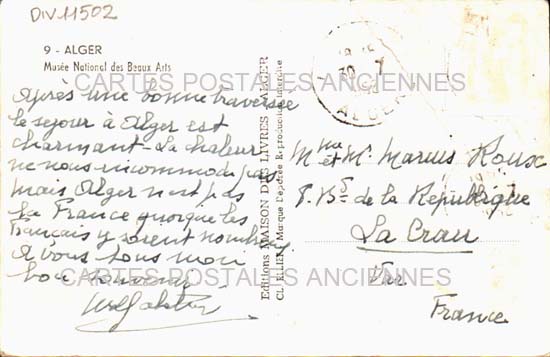 DIV 11502
9 - ALGER
Musée National des Beaux Arts
CARTES POSTALES ANCIENNES
Après une bonne traversée
le séjour à Alger est
charmant - La chaleur
ne nous incommode pas
mais Alger n'est pas
la France quoique les
Français y soient nombreux
A vous tous mon
bon souvenir
Editions MAISON DES LIVRES - ALGER
CL. Marque Déposée Reproduction Interdite
30 - 7
ALGER
Mme et Mr Marius Roux
Bd de la République
La Crau
Var
France
CARTES POSTALES ANCIENNES